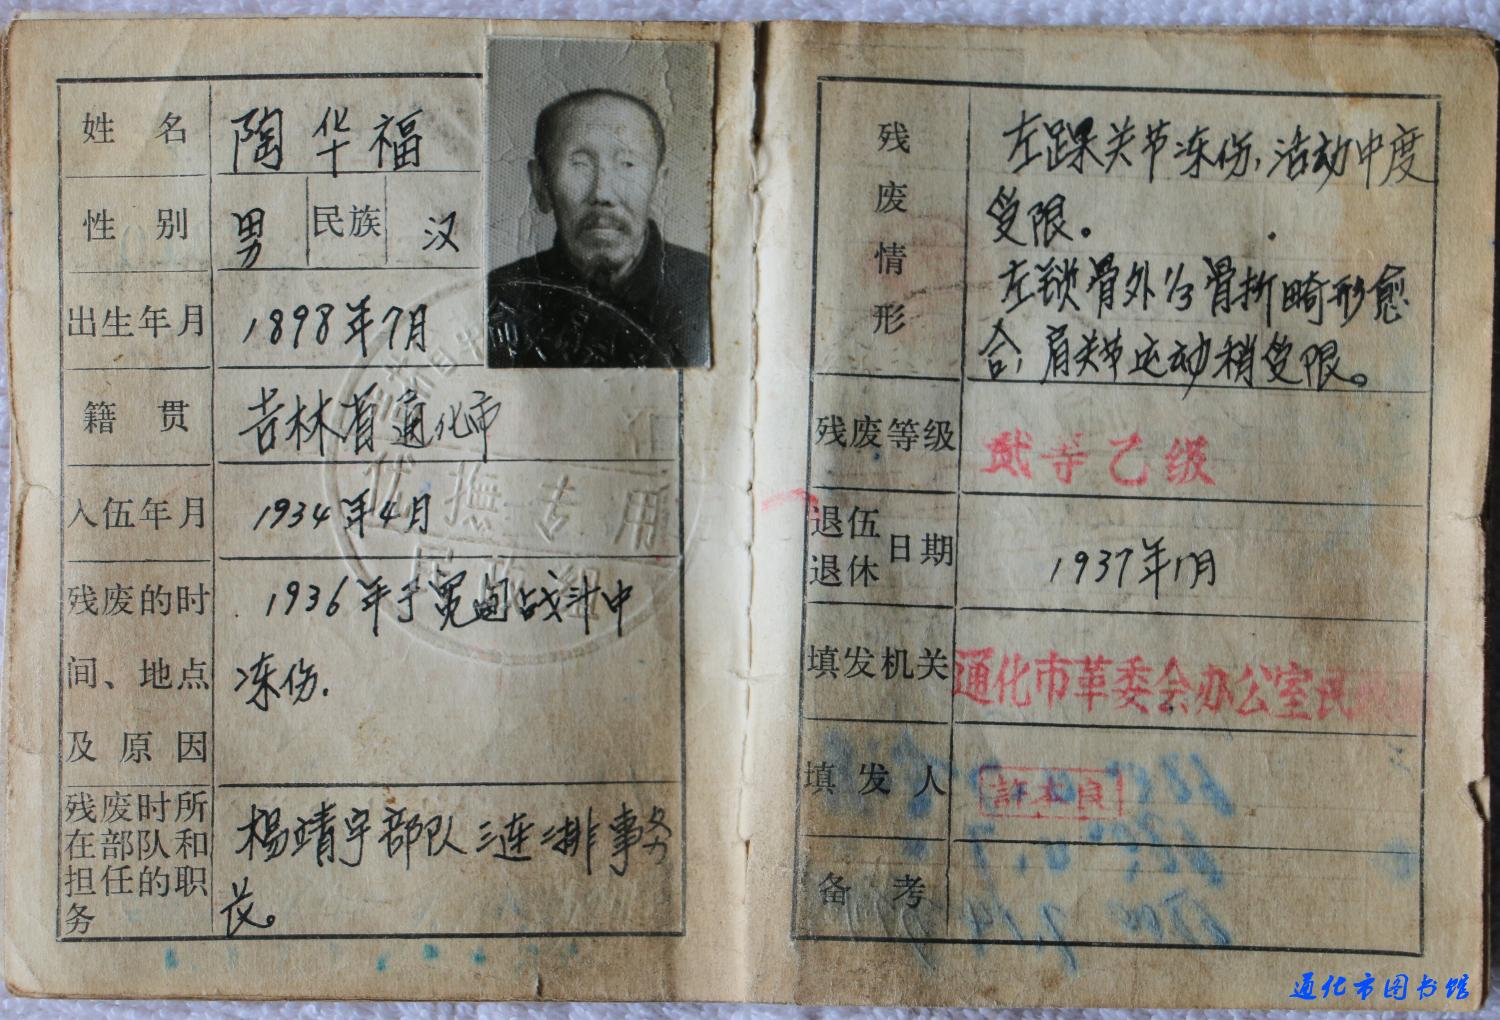 姓名 陶华福
性别 男 民族 汉
出生年月 1898年7月
籍贯 吉林省通化市
入伍年月 1934年4月
残废的时
间、地点
及原因
1936年于宽甸战斗中
冻伤.
残废时所
在部队和
担任的职
务
杨靖宇部队三连二排事务
长。
优抚专用
残废情形
左踝关节冻伤,活动中度
受限。
左锁骨外1/3骨折畸形愈
合,肩关节运动稍受限。
残废等级 贰等乙级
退伍
退休
日期
1937年1月
填发机关 通化市革委会办公室民
填发人 許本良
备考
通化市图书馆